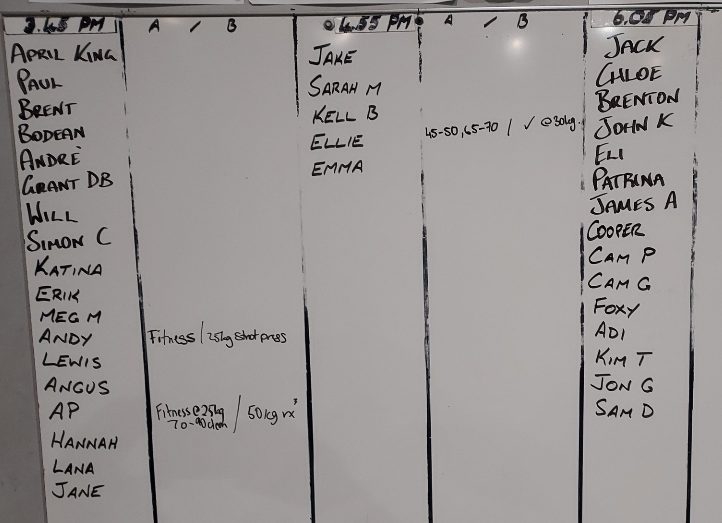 3.45 PM A / B
APRIL KING
PAUL
BRENT
BODEAN
ANDRÈ
GRANT DB
WILL
SIMON C
KATINA
ERIK
MEG M
ANDY Fitness / 25kg shot press
LEWIS
ANGUS
AP Fitness @ 25kg / 50kg rx
70-90 clean
HANNAH
LANA
JANE
4.55 PM A / B
JAKE
SARAH M
KELL B
ELLIE 45-50, 65-70 / ✓ @ 30kg.
EMMA
6.05 PM
JACK
CHLOE
BRENTON
JOHN K
ELI
PATRINA
JAMES A
COOPER
CAM P
CAM G
FOXY
ADI
KIM T
JON G
SAM D